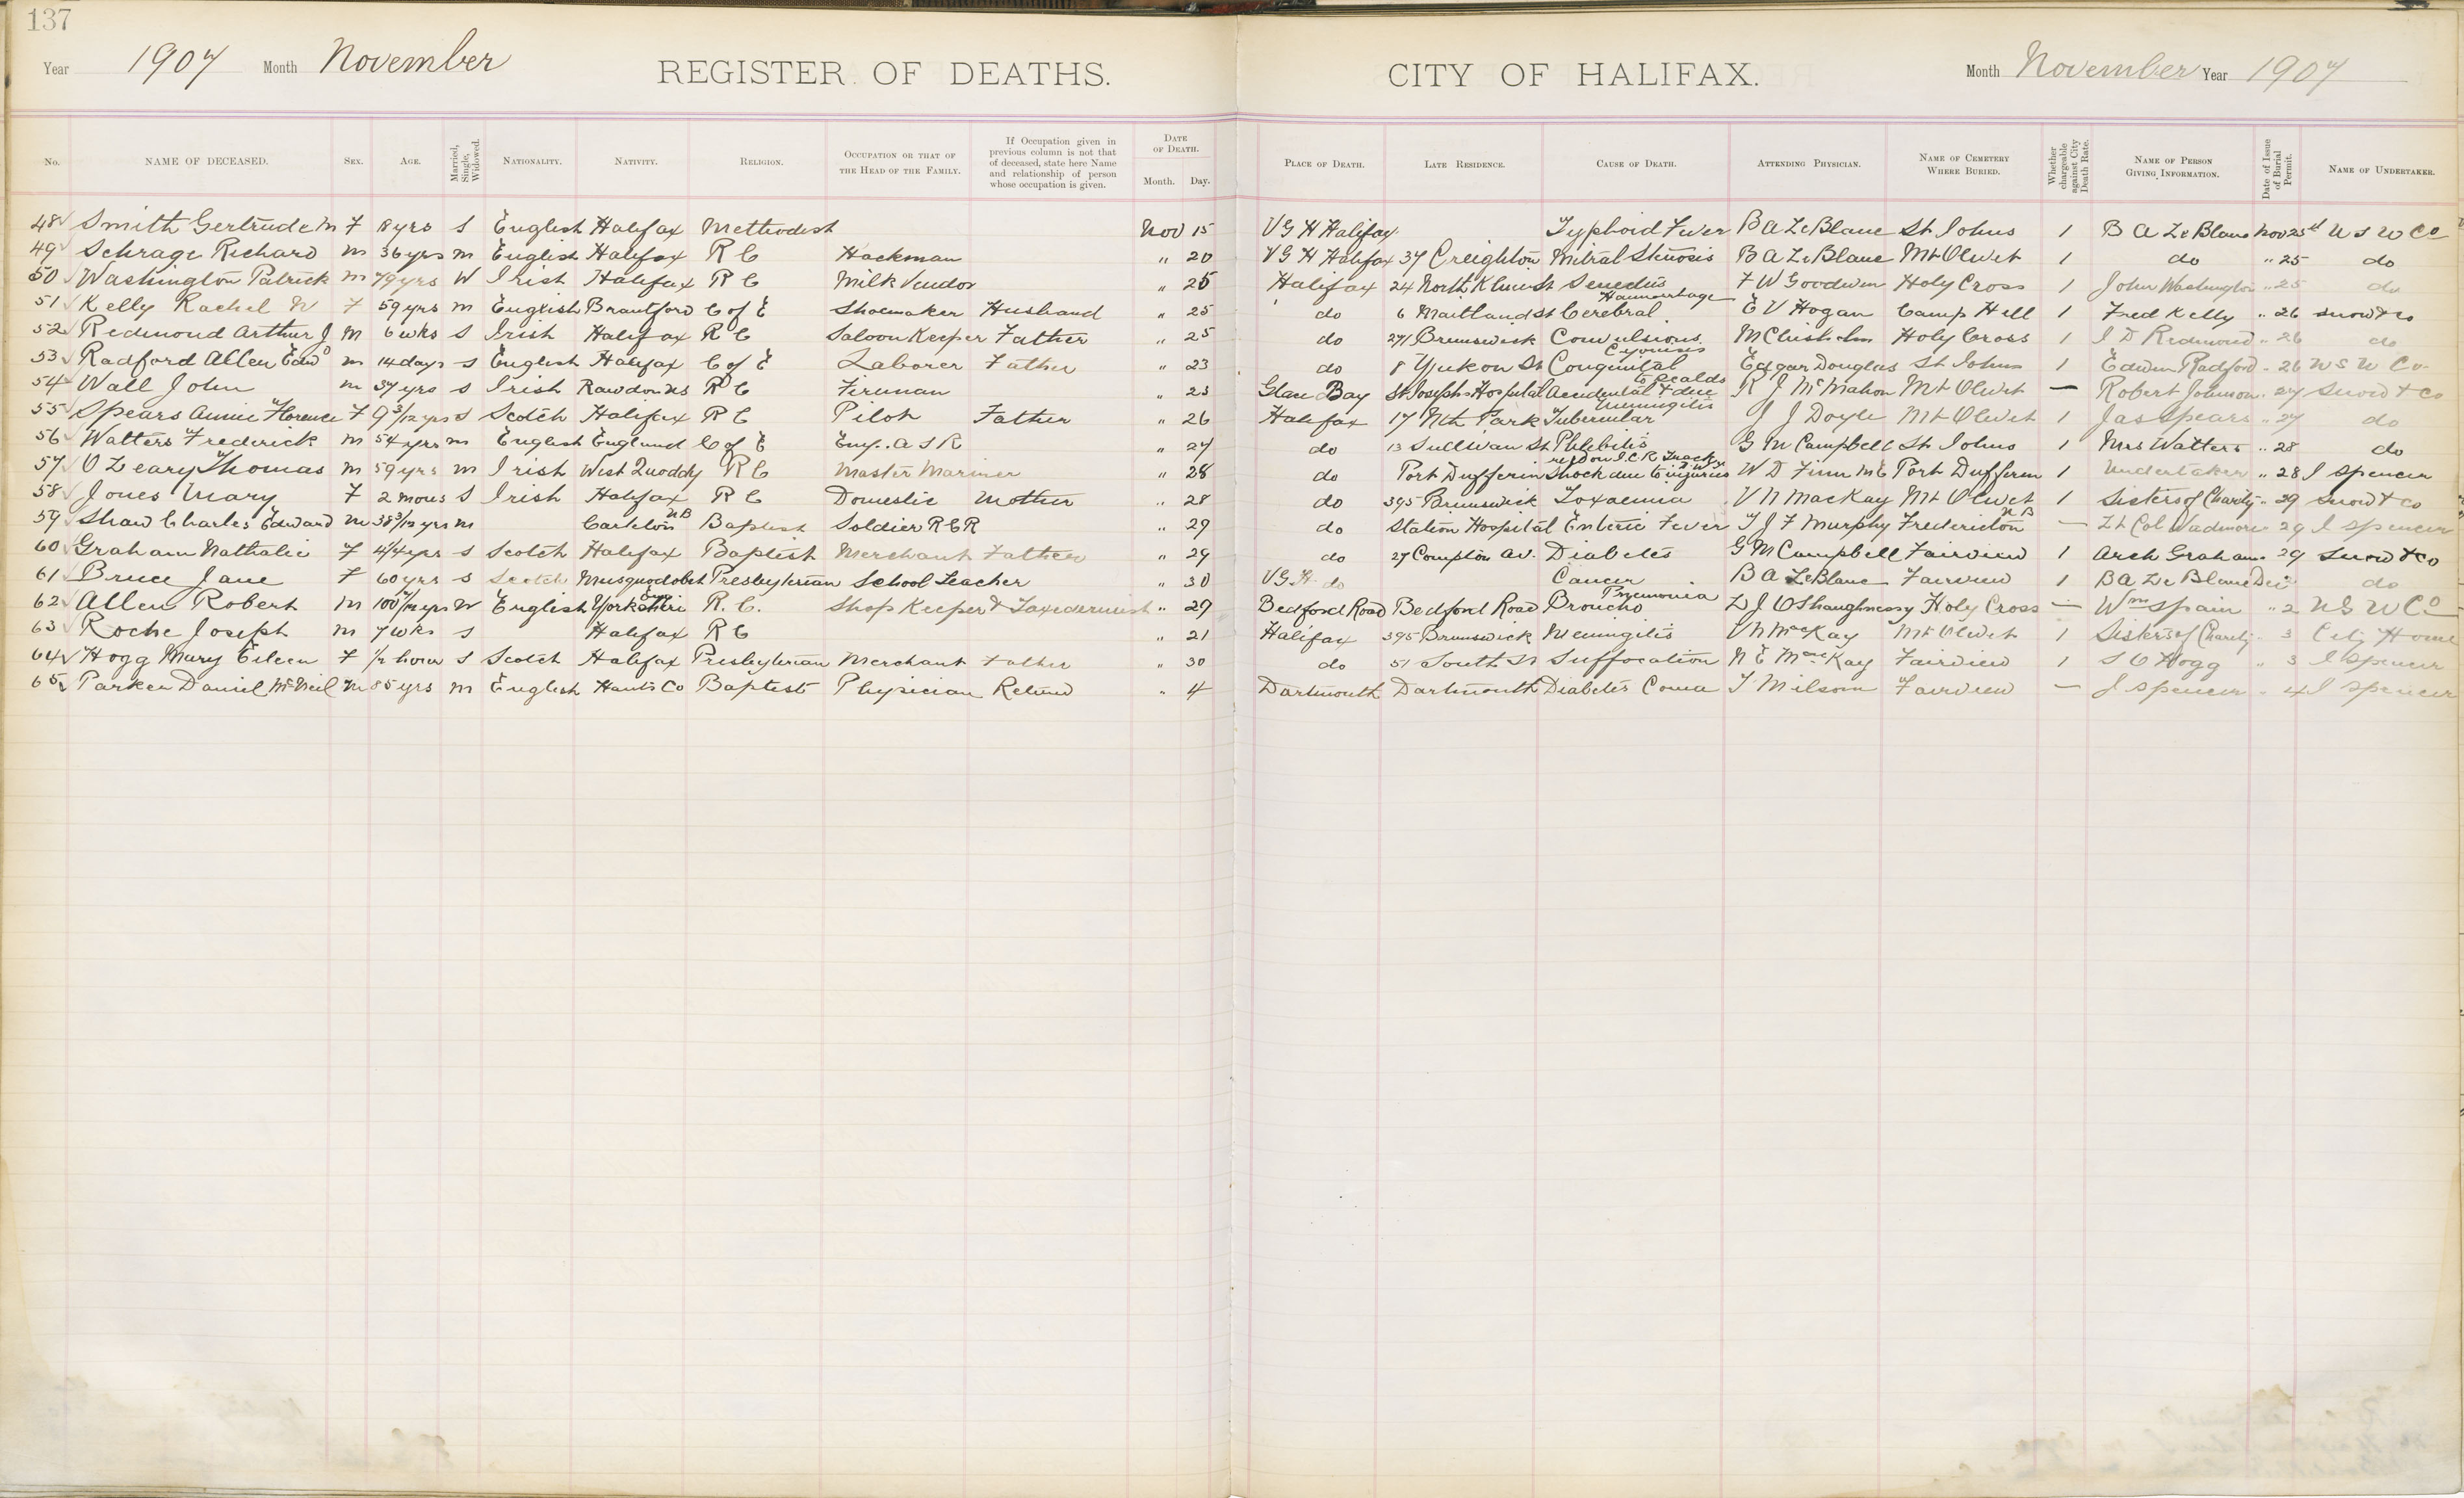 137
Year 1907 Month November REGISTER OF DEATHS. CITY OF HALIFAX. Month November Year 1907
No. NAME OF DECEASED. SEX. AGE. Married, Single, Widowed. NATIONALITY. NATIVITY. RELIGION. OCCUPATION OR THAT OF THE HEAD OF THE FAMILY. If Occupation given in previous column is not that of deceased, state here Name and relationship of person whose occupation is given. DATE OF DEATH. Month. Day. PLACE OF DEATH. LATE RESIDENCE. CAUSE OF DEATH. ATTENDING PHYSICIAN. NAME OF CEMETERY WHERE BURIED. Whether chargeable against City Death Rate. NAME OF PERSON GIVING INFORMATION. Date of Issue of Burial Permit. NAME OF UNDERTAKER.
48 Smith Gertrude M F 8 yrs S English Halifax Methodist Nov 15 V G H Halifax Typhoid Fever B A LeBlanc St Johns 1 B A LeBlanc Nov 25th N S U Co
49 Schrage Richard M 36 yrs M English Halifax R C Hackman " 20 V G H Halifax 37 Creighton Mitral Stenosis B A LeBlanc Mt Olivet 1 do " 25 do
50 Washington Patrick M 79 yrs W Irish Halifax R C Milk Vendor " 25 Halifax 24 North Kline St Senectus F W Goodwin Holy Cross 1 John Washington " 25 do
51 Kelly Rachel W F 59 yrs M English Brantford C of E Shoemaker Husband " 25 do 6 Maitland St Cerebral Haemorrhage E V Hogan Camp Hill 1 Fred Kelly " 26 Snow & Co
52 Redmond Arthur J M 6 wks S Irish Halifax R C Saloon Keeper Father " 25 do 271 Brunswick Convulsions M Chisholm Holy Cross 1 J D Redmond " 26 do
53 Radford Allen Edwd M 14 days S English Halifax C of E Laborer Father " 23 do 8 Yukon St Congenital Cyanosis Edgar Douglas St Johns 1 Edwin Radford " 26 N S U Co
54 Wall John M 37 yrs S Irish Rawdon NS R C Fireman " 23 Glace Bay St Josephs Hospital Accidental & due to Scalds R J McMahon Mt Olivet — Robert Johnson " 27 Snow & Co
55 Spears Annie Florence F 9 3/12 yrs S Scotch Halifax R C Pilot Father " 26 Halifax 17 Nth Park Tubercular Meningitis J J Doyle Mt Olivet 1 Jas Spears " 27 do
56 Walters Frederick M 54 yrs M English England C of E Eng. A S R " 27 do 13 Sullivan St Phlebitis G M Campbell St Johns 1 Mrs Walters " 28 do
57 O Leary Thomas M 59 yrs M Irish West Quoddy R C Master Mariner " 28 do Port Dufferin Shock due to injuries recd on I.C.R Track W D Finn M E Port Dufferin 1 Undertaker " 28 J Spencer
58 Jones Mary F 2 mons S Irish Halifax R C Domestic Mother " 28 do 395 Brunswick Toxaemia V N MacKay Mt Olivet 1 Sisters of Charity " 29 Snow & Co
59 Shaw Charles Edward M 38 3/12 yrs M Carleton NB Baptist Soldier R C R " 29 do Station Hospital Enteric Fever T J F Murphy Fredericton N B — Lt Col Wadmore " 29 J Spencer
60 Graham Nathalie F 4 1/4 yrs S Scotch Halifax Baptist Merchant Father " 29 do 27 Compton Av. Diabetes G M Campbell Fairview 1 Arch Graham " 29 Snow & Co
61 Bruce Jane F 60 yrs S Scotch Musquodobit Presbyterian School Teacher " 30 V G H do Cancer B A LeBlanc Fairview 1 B A LeBlanc Dec 2 do
62 Allen Robert M 100 7/12 yrs W English Yorkshire Eng R. C. Shop Keeper & Taxedermist " 29 Bedford Road Bedford Road Broncho Pneumonia D J O Shaughnessy Holy Cross — Wm Spain " 2 N S U Co
63 Roche Joseph M 7 wks S Halifax R C " 21 Halifax 395 Brunswick Meningitis V N MacKay Mt Olivet 1 Sisters of Charity " 3 City Home
64 Hogg Mary Eileen F 1/2 hour S Scotch Halifax Presbyterian Merchant Father " 30 do 51 South St Suffocation N E MacKay Fairview 1 S O Hogg " 3 J Spencer
65 Parker Daniel McNeil M 85 yrs M English Hants Co Baptist Physician Retired " 4 Dartmouth Dartmouth Diabetes Coma T Milsom Fairview — J Spencer " 4 J Spencer